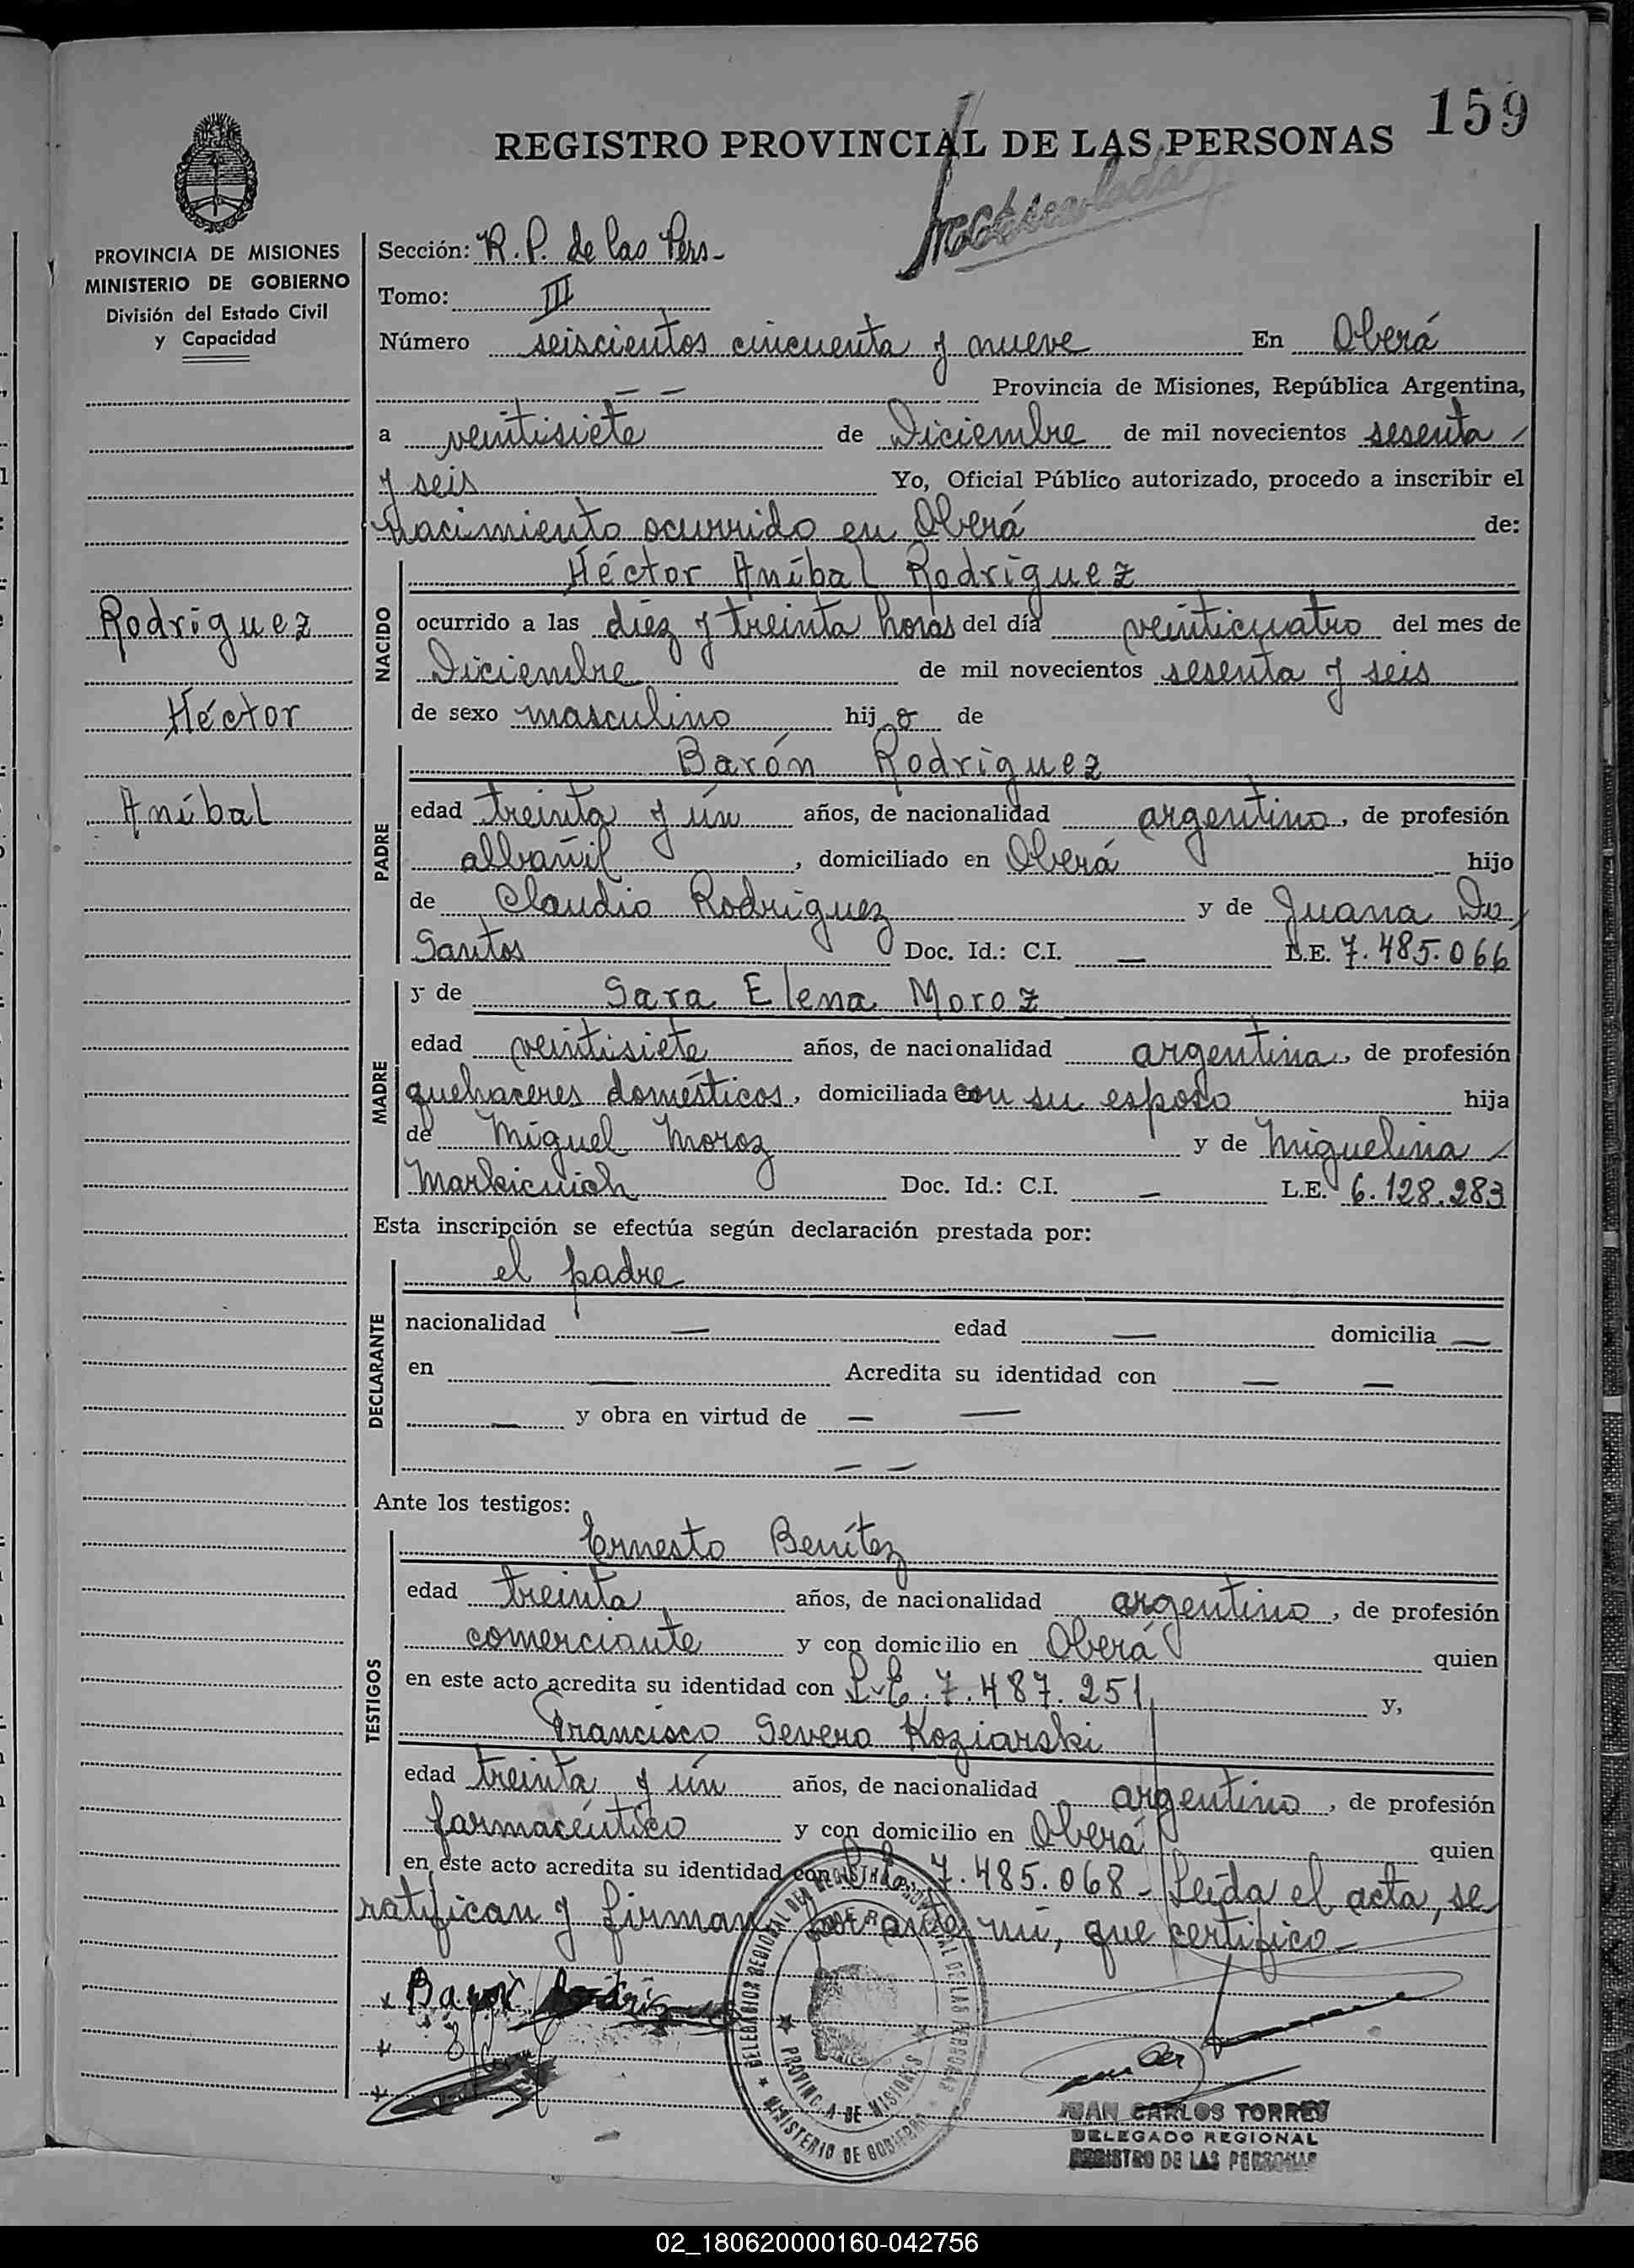 159
REGISTRO PROVINCIAL DE LAS PERSONAS
PROVINCIA DE MISIONES
MINISTERIO DE GOBIERNO
División del Estado Civil
y Capacidad
Rodríguez
Héctor
Aníbal
Sección: R.P. de las Pers-
Tomo: III
Número seiscientos cincuenta y nueve En Oberá
— — Provincia de Misiones, República Argentina,
a veintisiete de Diciembre de mil novecientos sesenta
y seis Yo, Oficial Público autorizado, procedo a inscribir el
nacimiento ocurrido en Oberá de:
NACIDO
Héctor Aníbal Rodríguez
ocurrido a las diez y treinta horas del día veinticuatro del mes de
Diciembre de mil novecientos sesenta y seis
de sexo masculino hijo de
PADRE
Barón Rodríguez
edad treinta y ún años, de nacionalidad argentino, de profesión
albañil, domiciliado en Oberá hijo
de Claudio Rodríguez y de Juana Do
Santos Doc. Id.: C.I. — L.E. 7.485.066
MADRE
y de Sara Elena Moroz
edad veintisiete años, de nacionalidad argentina, de profesión
quehaceres domésticos, domiciliada con su esposo hija
de Miguel Moroz y de Miguelina
Doc. Id.: C.I. — L.E. 6.128.283
Esta inscripción se efectúa según declaración prestada por:
DECLARANTE
el padre
nacionalidad — edad — domicilia —
en — Acredita su identidad con — —
— y obra en virtud de — —
— —
Ante los testigos:
TESTIGOS
Ernesto Benítez
edad treinta años, de nacionalidad argentino, de profesión
comerciante y con domicilio en Oberá quien
en este acto acredita su identidad con L.E. 7.487.251 y,
Francisco Severo Koziarski
edad treinta y ún años, de nacionalidad argentino, de profesión
farmacéutico y con domicilio en Oberá quien
en este acto acredita su identidad con L.E. 7.485.068 - Leída el acta, se
ratifican y firman por ante mí, que certifico-
PROVINCIA DE MISIONES
MINISTERIO DE GOBIERNO
JUAN CARLOS TORRES
DELEGADO REGIONAL
REGISTRO DE LAS PERSONAS
02_180620000160-042756